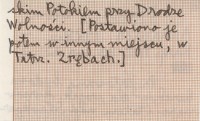 skim Potokiem przy Drodze
Wolności. [Postawiono je
potem w innym miejscu, w
Tatrz. Zrębach.]